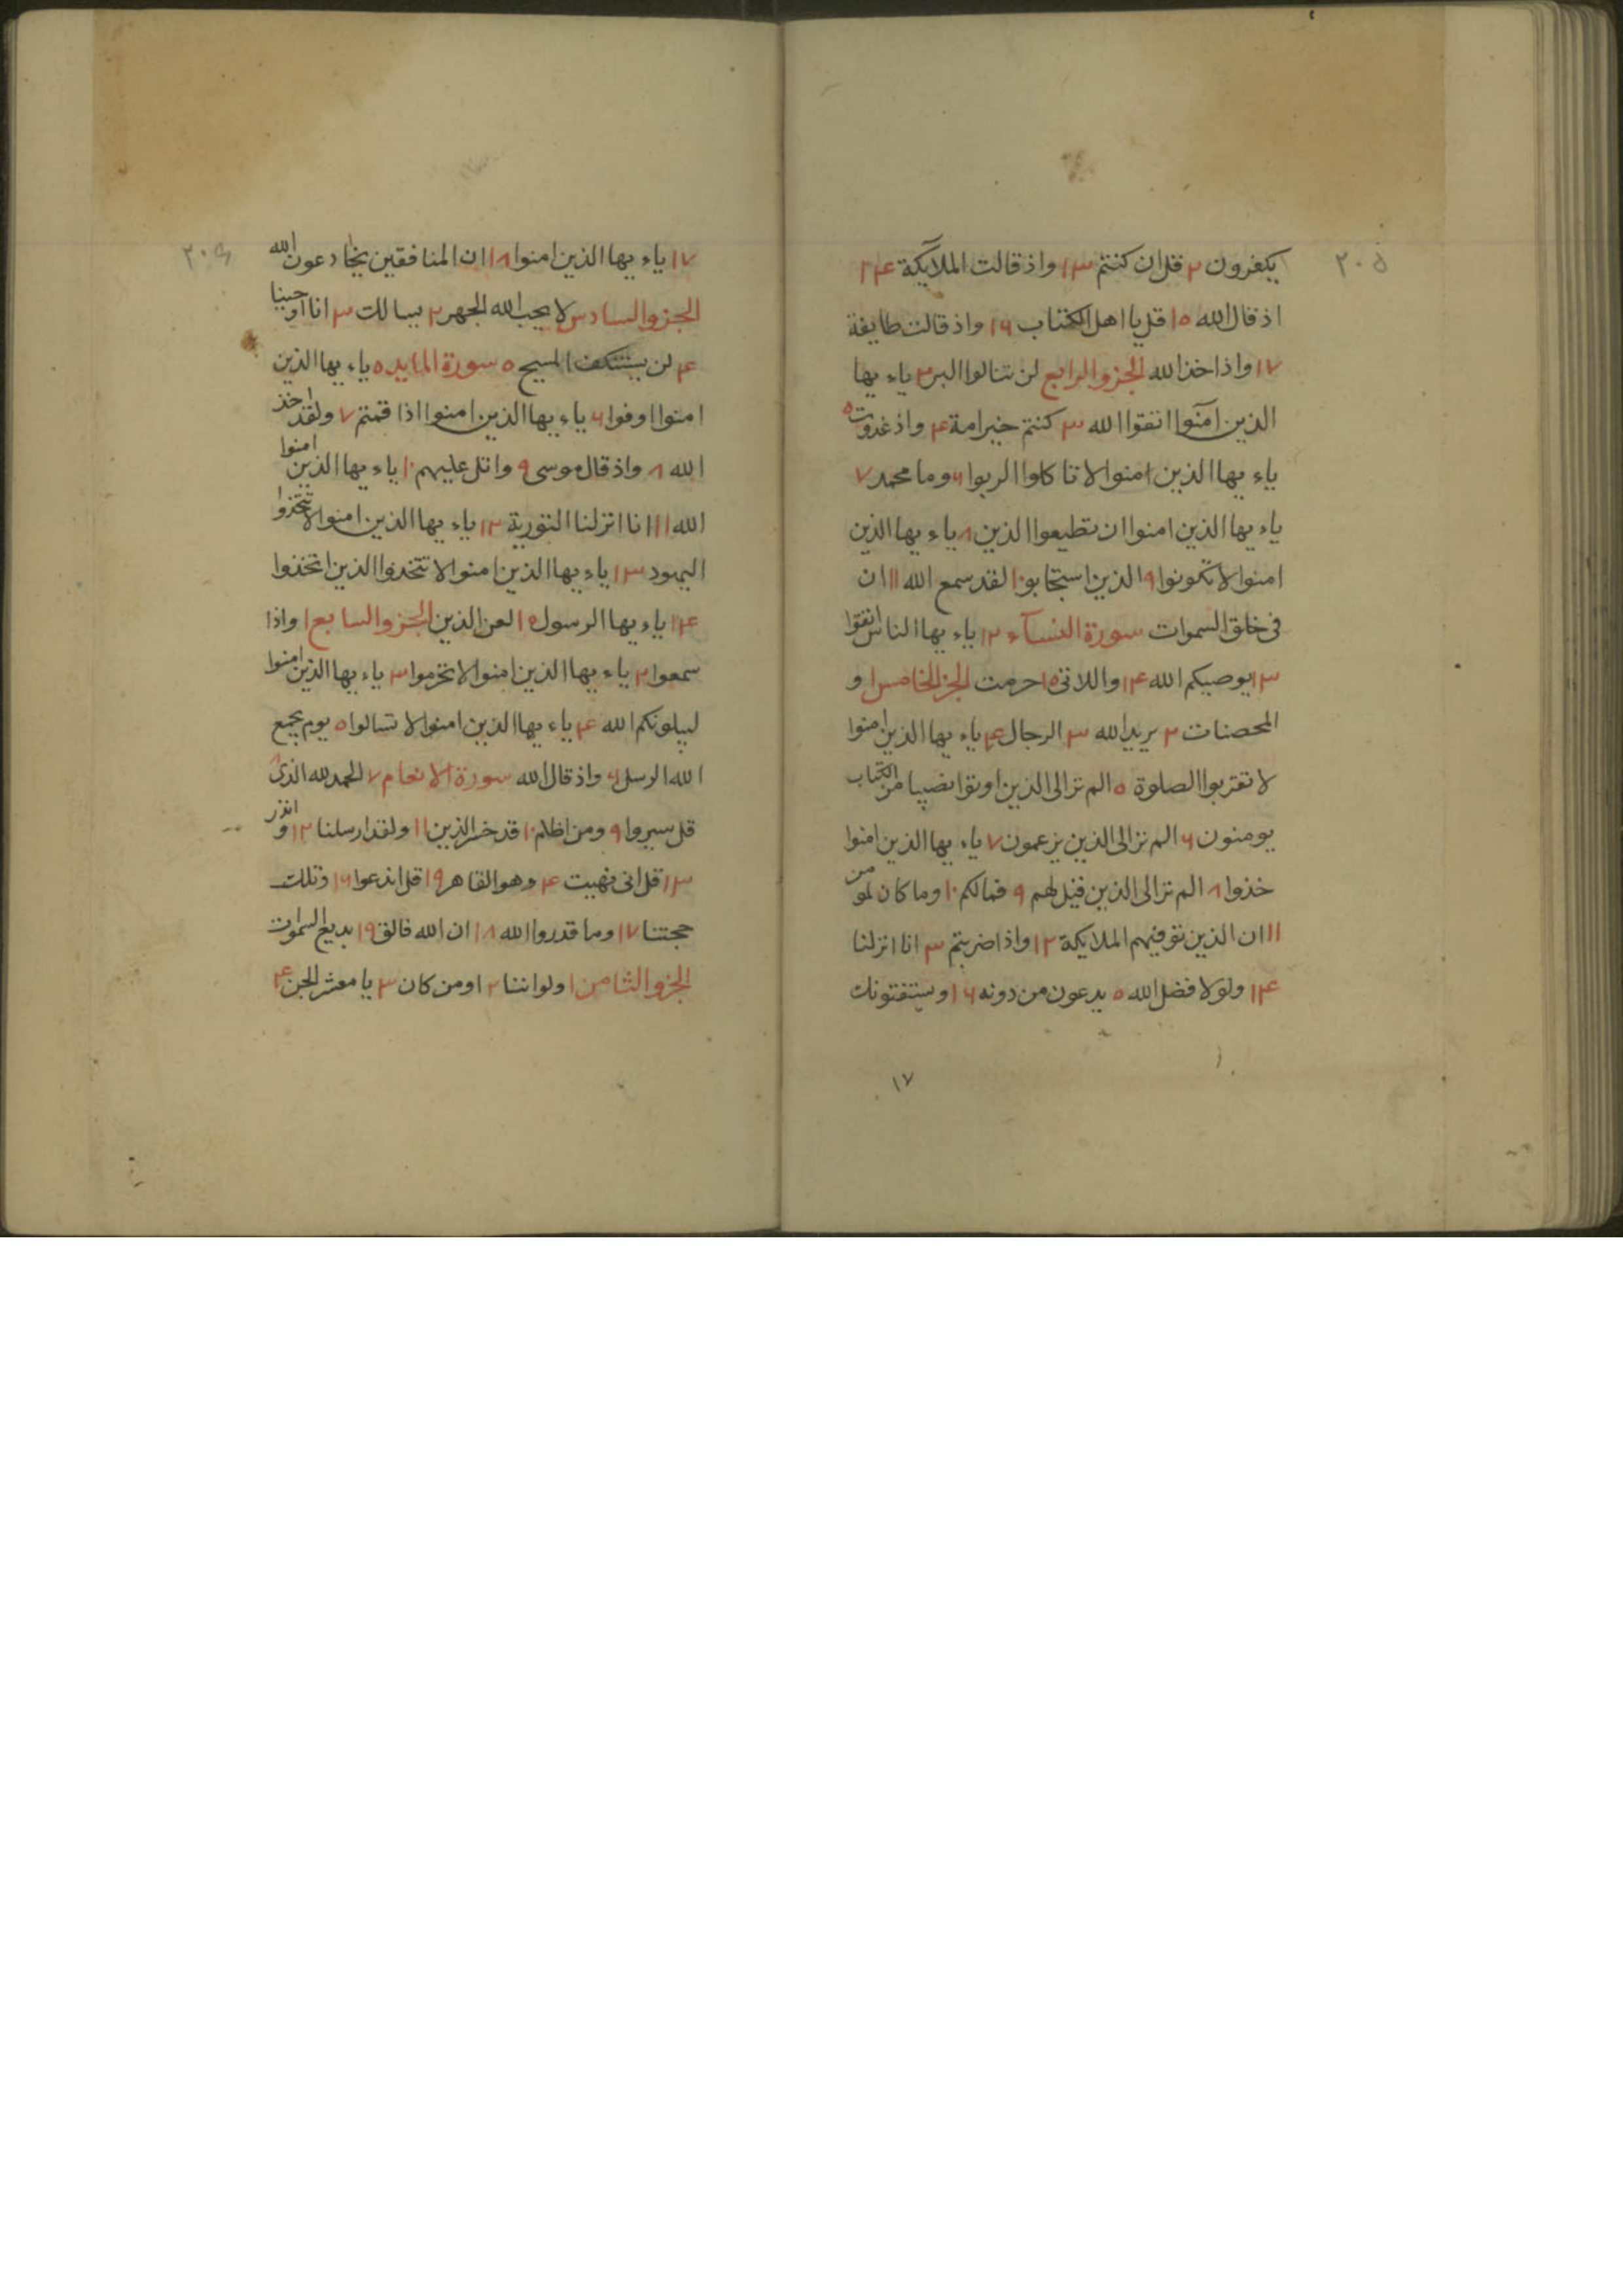 ٢٠٥
يكفرون ٢ قل ان كنتم ١٣ واذ قالت الملآيكة ١٤
اذ قال الله ١٥ قل يا اهل الكتاب ١٦ واذ قالت طايفة
١٧ واذ اخذ الله الجزو الرابع لن تنالوا البر ٢ ياء يها
الذين آمنوا اتقوا الله ٣ كنتم خير امة ٤ واذ غدوت ٥
ياء يها الذين امنوا لا تاكلوا الربوا ٦ وما محمد ٧
ياء يها الذين امنوا ان تطيعوا الذين ٨ ياء يها الذين
امنوا لا تكونوا ٩ الذين استجابوا ١٠ لقد سمع الله ١١ ان
فى خلق السموات سورة النسآء ١٢ ياء يها الناس اتقوا
١٣ يوصيكم الله ١٤ واللاتى ١٥ حرمت الجز الخامس ١ و
المحصنات ٢ يريد الله ٣ الرجال ٤ ياء يها الذين امنوا
لا تقربوا الصلوة ٥ الم تر الى الذين اوتوا نصيبا من الكتاب
يومنون ٦ الم تر الى الذين يزعمون ٧ ياء يها الذين امنوا
خذوا ٨ الم تر الى الذين قيل لهم ٩ فمالكم ١٠ وما كان لمومن
١١ ان الذين توفيهم الملايكة ١٢ واذا ضربتم ٣ انا انزلنا
١٤ ولولا فضل الله ٥ يدعون من دونه ١٦ ويستفتونك
١٧
٢٠٦
١٧ ياء يها الذين امنوا ١٨ ان المنافقين يخادعون الله
الجزو السادس لا يحب الله الجهر ٢ يسالك ٣ انا اوحينا
٤ لن يستنكف المسيح ٥ سورة المايده ٥ ياء يها الذين
امنوا اوفوا ٦ ياء يها الذين امنوا اذا قمتم ٧ ولقد اخذ
الله ٨ واذ قال موسى ٩ واتل عليهم ١٠ ياء يها الذين امنوا
الله ١١ انا انزلنا التورية ١٢ ياء يها الذين امنوا لا تتخذوا
اليهود ١٣ ياء يها الذين امنوا لا تتخذوا الذين اتخذوا
١٤ ياء يها الرسول ١٥ لعن الذين الجزو السابع ١ واذا
سمعوا ٢ ياء يها الذين امنوا لا تحرموا ٣ ياء يها الذين امنوا
ليبلونكم الله ٤ ياء يها الذين امنوا لا تسالوا ٥ يوم يجمع
الله الرسل ٦ واذ قال الله سورة الانعام ٧ الحمد لله الذى ٨
قل سيروا ٩ ومن اظلم ١٠ قد خسر الذين ١١ ولقد ارسلنا ١٢ وانذر
١٣ قل انى نهيت ٤ وهو القاهر ١٩ قل اندعوا ١٦ وتلك
حجتنا ١٧ وما قدروا الله ١٨ ان الله فالق ١٩ بديع السموات
الجزو الثامن ١ ولو اننا ٢ اومن كان ٣ يا معشر الجن ٤